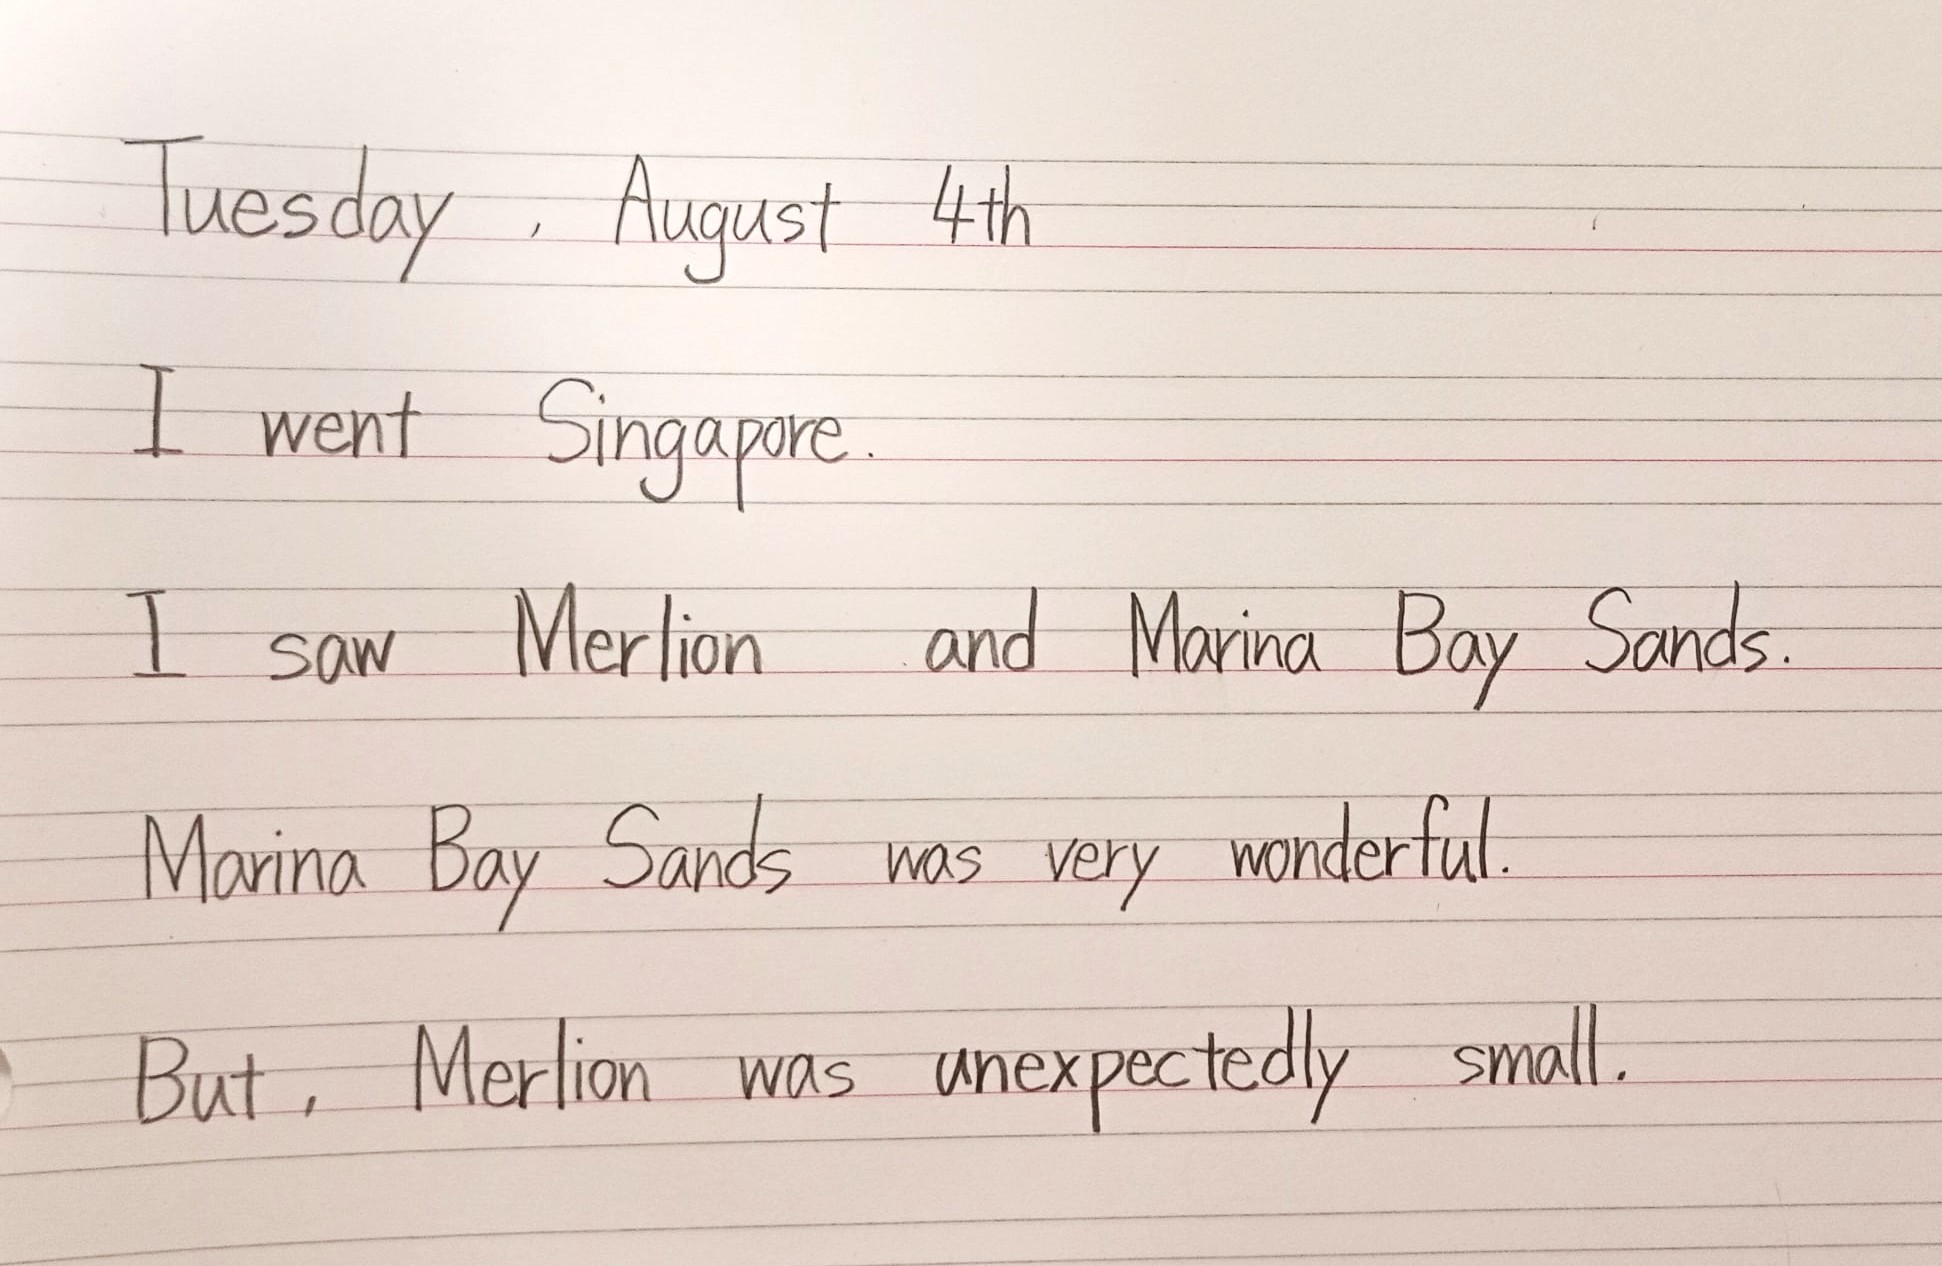 Tuesday, August 4th
I went Singapore.
I saw Merlion and Marina Bay Sands.
Marina Bay Sands was very wonderful.
But, Merlion was unexpectedly small.